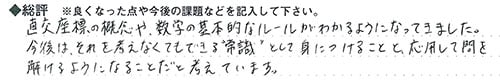 ◆総評 ※良くなった点や今後の課題などを記入して下さい。
直交座標の概念や、数学の基本的なルールがわかるようになってきました。
今後は、それを考えなくてもできる"常識"として身につけることと、応用して問を
解けるようになることだと考えています。